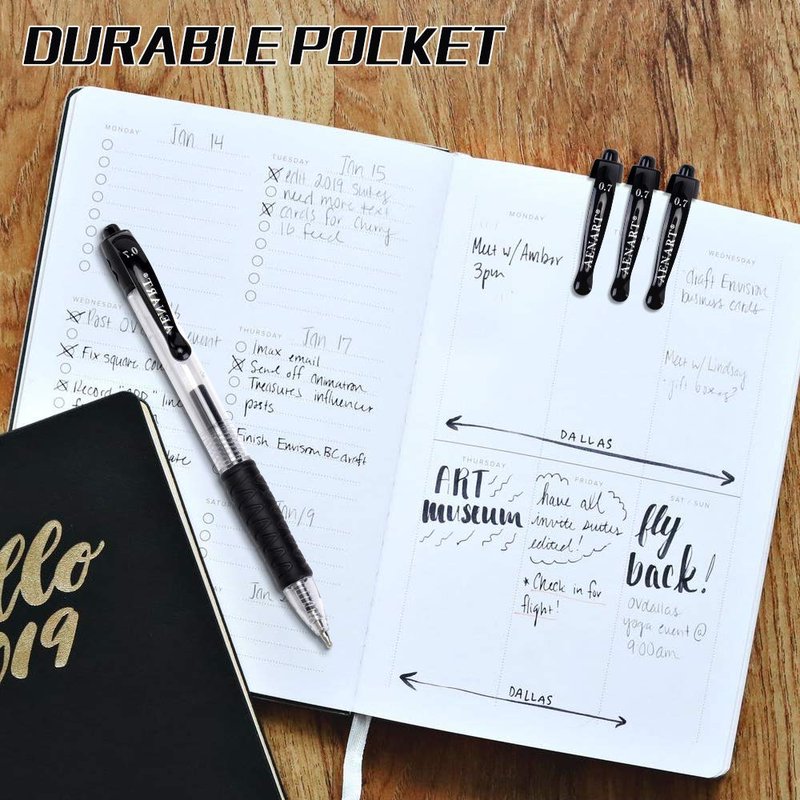 DURABLE POCKET
MONDAY
Jan 14
TUESDAY
Jan 15
edit 2019 suites
need more text
cards for cherry
lb feed
WEDNESDAY
Post OV
Fix square
Record "APP" line
THURSDAY
Jan 17
Imax email
Send off animation
Treasures influencer
posts
Finish Envision BC draft
0.7
AENART®
SATU
Jan 19
Jan
MONDAY
Meet w/Amber
3pm
0.7
AENART®
0.7
AENART®
0.7
AENART®
WEDNESDAY
draft Envision
business cards
Meet w/Lindsay
gift boxes?
DALLAS
THURSDAY
ART
museum
FRIDAY
have all
invite suites
edited!
* Check in for
flight!
SAT / SUN
fly
back!
OVdallas
yoga event @
9:00am
DALLAS
llo
019